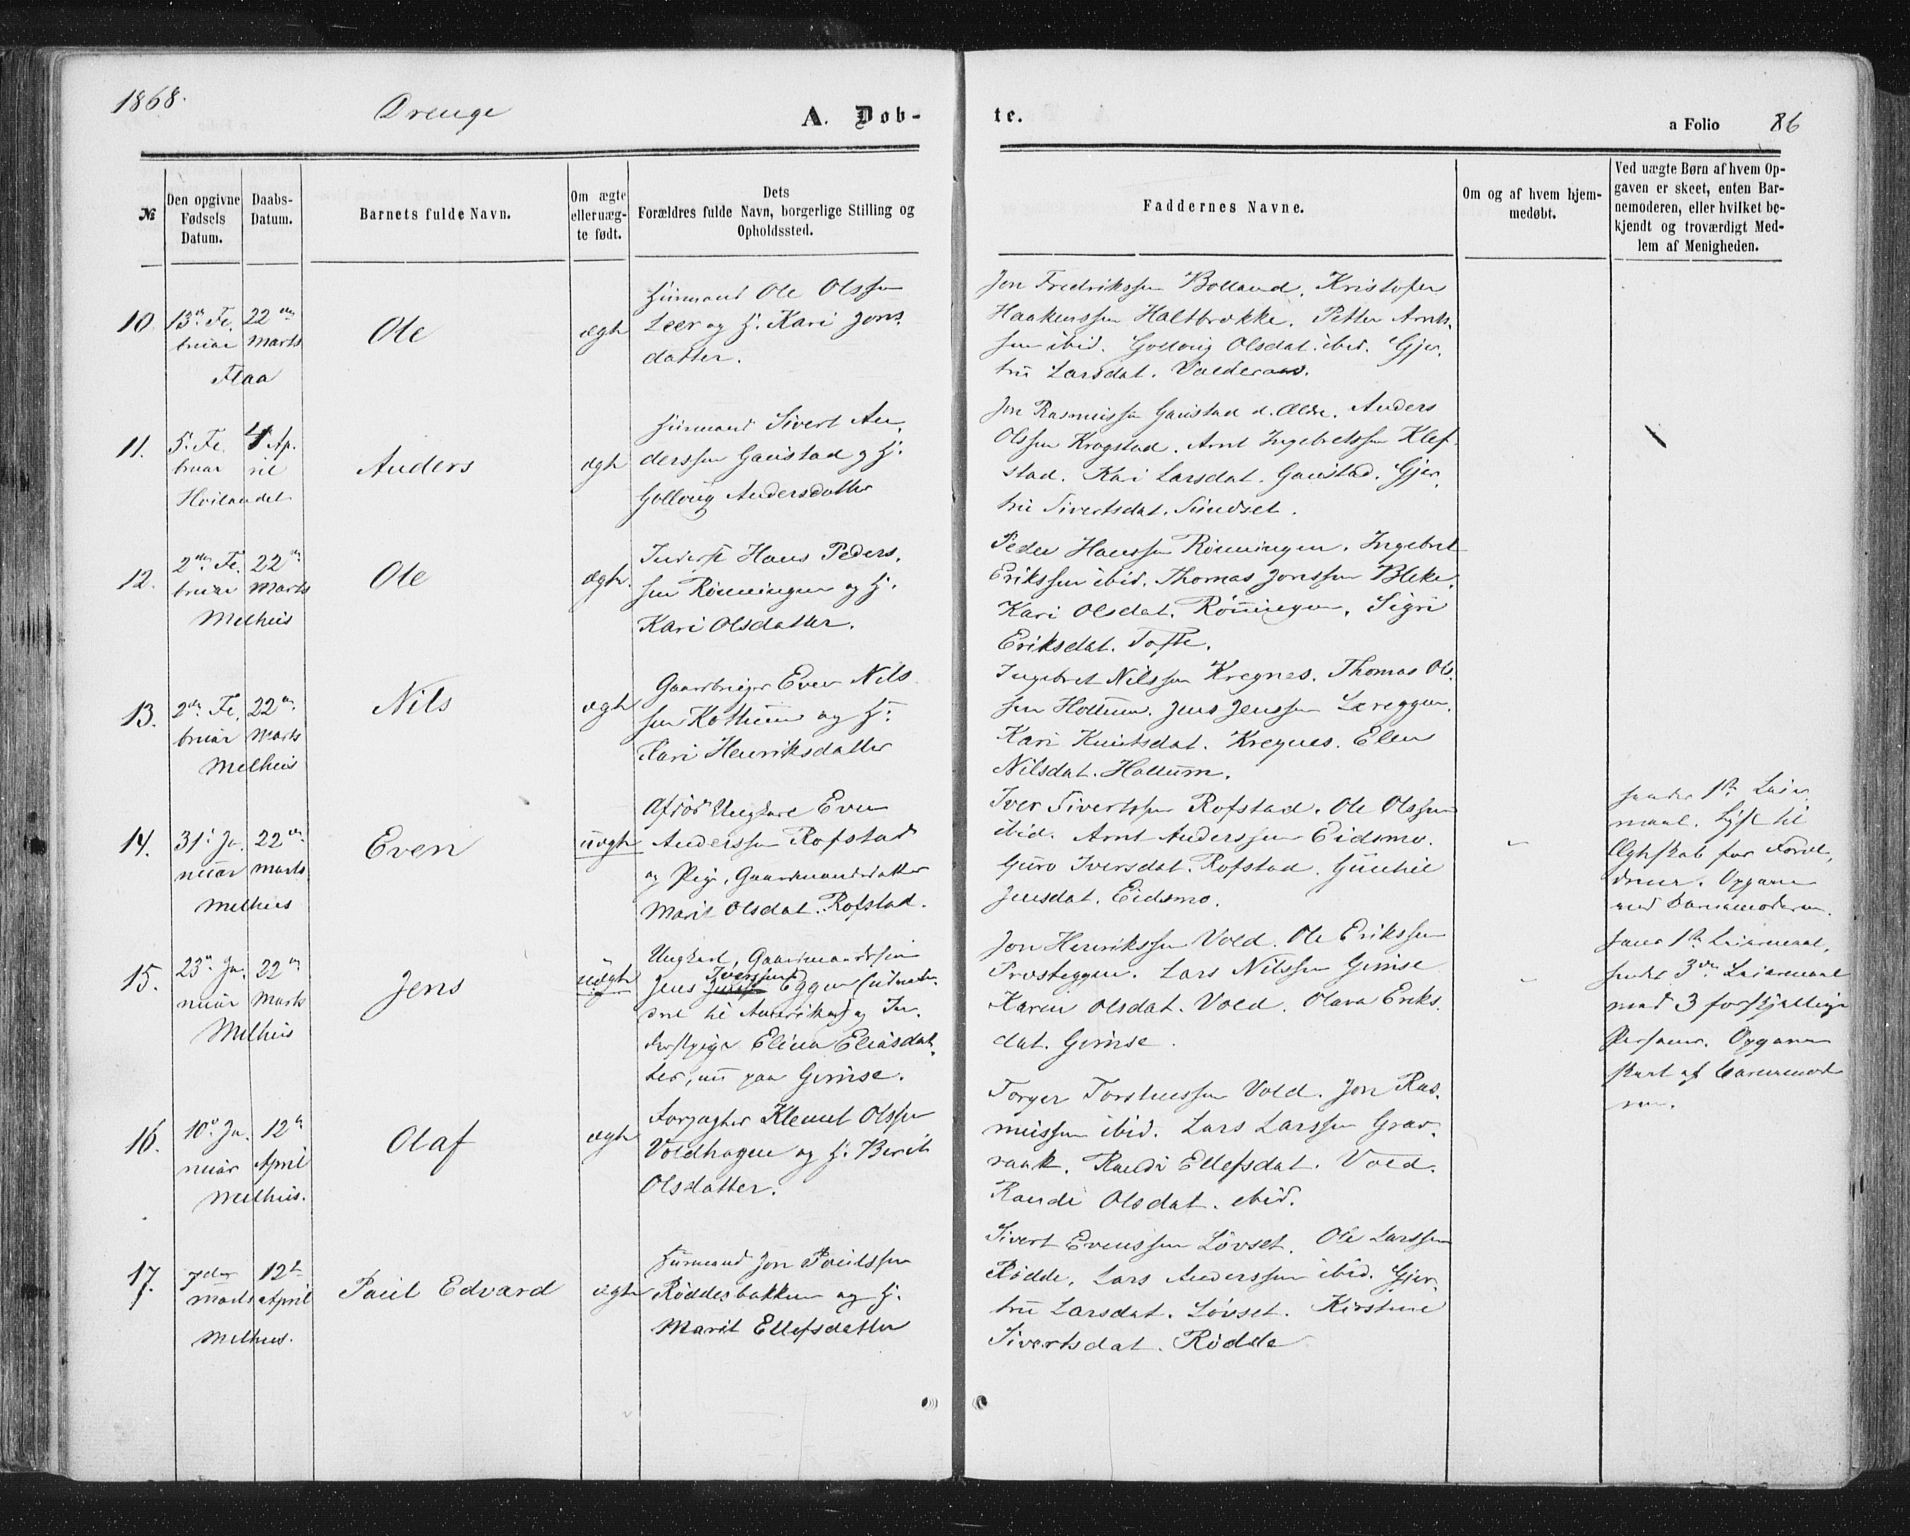 1868.
Drenge
A. Dob-
te.
a Folio
86
№
Den opgivne
Fødsels
Datum.
Daabs-
Datum.
Barnets fulde Navn.
Om ægte
eller uæg-
te født.
Dets
Forældres fulde Navn, borgerlige Stilling og
Opholdssted.
Faddernes Navne.
Om og af hvem hjem-
medøbt.
Ved uægte Børn af hvem Op-
gaven er skeet, enten Bar-
nemoderen, eller hvilket be-
kjendt og troværdigt Med-
lem af Menigheden.
10.
13de Fe.
bruar
22de
Marts
Flaa
Ole
ægte
Huusmand Ole Olssen
Leer og H. Kari Jons
datter.
Jon Fredrikssen Bolland. Kristofer
Haakenssen Haltbrække. Petter Arnts-
sen ibid. Gollaug Olsdat. ibid. Gjer-
tru Larsdat. Valderaas.
11.
5. Fe.
bruar
4. Ap.
ril
Hølandet
Anders
ægte
Huusmand Sivert An-
derssen Gaustad og H.
Gollaug Andersdatter
Jon Rasmussen Gaustad d. Ældre. Anders
Olssen Krogstad. Arnt Ingebretssen Klef-
stad. Kari Larsdat. Gaustad. Gjer-
tru Sivertsdat. Sundset.
12.
2den Fe.
bruar
22de
Marts
Melhus
Ole
ægte.
Inderst Hans Peders.
sen Rönningen og H.
Kari Olsdatter.
Peder Hanssen Rönningen. Ingebret
Erikssen ibid. Thomas Jonssen Bleke.
Kari Olsdat. Rönningen. Sigri
Eriksdat. Tofte.
13.
2den Fe.
bruar
22de
Marts
Melhus
Nils
ægte
Gaardbruger Even Nils
sen Hollum og H.
Kari Henriksdatter
Ingebret Nilssen Kregnes. Thomas Ols-
sen Hollum. Jens Jenssen Lereggen.
Kari Knutsdat. Kregnes. Elen
Nilsdat. Hollum.
14.
31. Ja.
nuar
22de
Marts
Melhus
Even
uægte
Afdød Ungkarl Even
Anderssen Rofstad
og Pige, Gaardmandsdatter
Marit Olsdat. Rofstad.
Iver Sivertssen Rofstad. Ole Olssen
ibid. Arnt Anderssen Eidsmo.
Guro Iversdat. Rofstad. Gunhil
Jensdat. Eidsmo.
1te Leier
maal. Lyst til
Ægteskab for Foræl-
drene. Opgave
ved Barnemoderen.
15.
23de Ja.
nuar
22de
Marts
Melhus
Jens
uægte
Ungkarl, Gaardmandssøn
Jens Iverssen Eggen (udvan-
dret til Amerika) og In-
derstpige Elina Eliasdat-
ter, nu paa Gimse.
Jon Henrikssen Vold. Ole Erikssen
Trøsteggen. Lars Nilssen Gimse
Karen Olsdat. Vold. Olava Eriks
dat. Gimse.
Hans 1te Leiermaal,
hendes 3die Leiermaal
med 3 forskjellige
Personer. Opgaven
skeet af Barnemode
ren.
16.
10de Ja.
nuar
12te
April
Melhus.
Olaf
ægte
Forpagter Klemet Olssen
Voldhagen og H. Berit
Olsdatter.
Torger Torstenssen Vold. Jon Ras-
mussen ibid. Lars Larssen Grav-
raak. Randi Ellefsdat. Vold.
Randi Olsdat. ibid.
17.
7de
Marts
12te
April
Melhus.
Paul Edvard
ægte
Huusmand Jon Paulssen
Røddesbakken og H.
Marit Ellefsdatter
Sivert Evenssen Løvset. Ole Larssen
Rødde. Lars Anderssen ibid. Gjer-
tru Larsdat. Løvset. Kirstine
Sivertsdat. Rødde